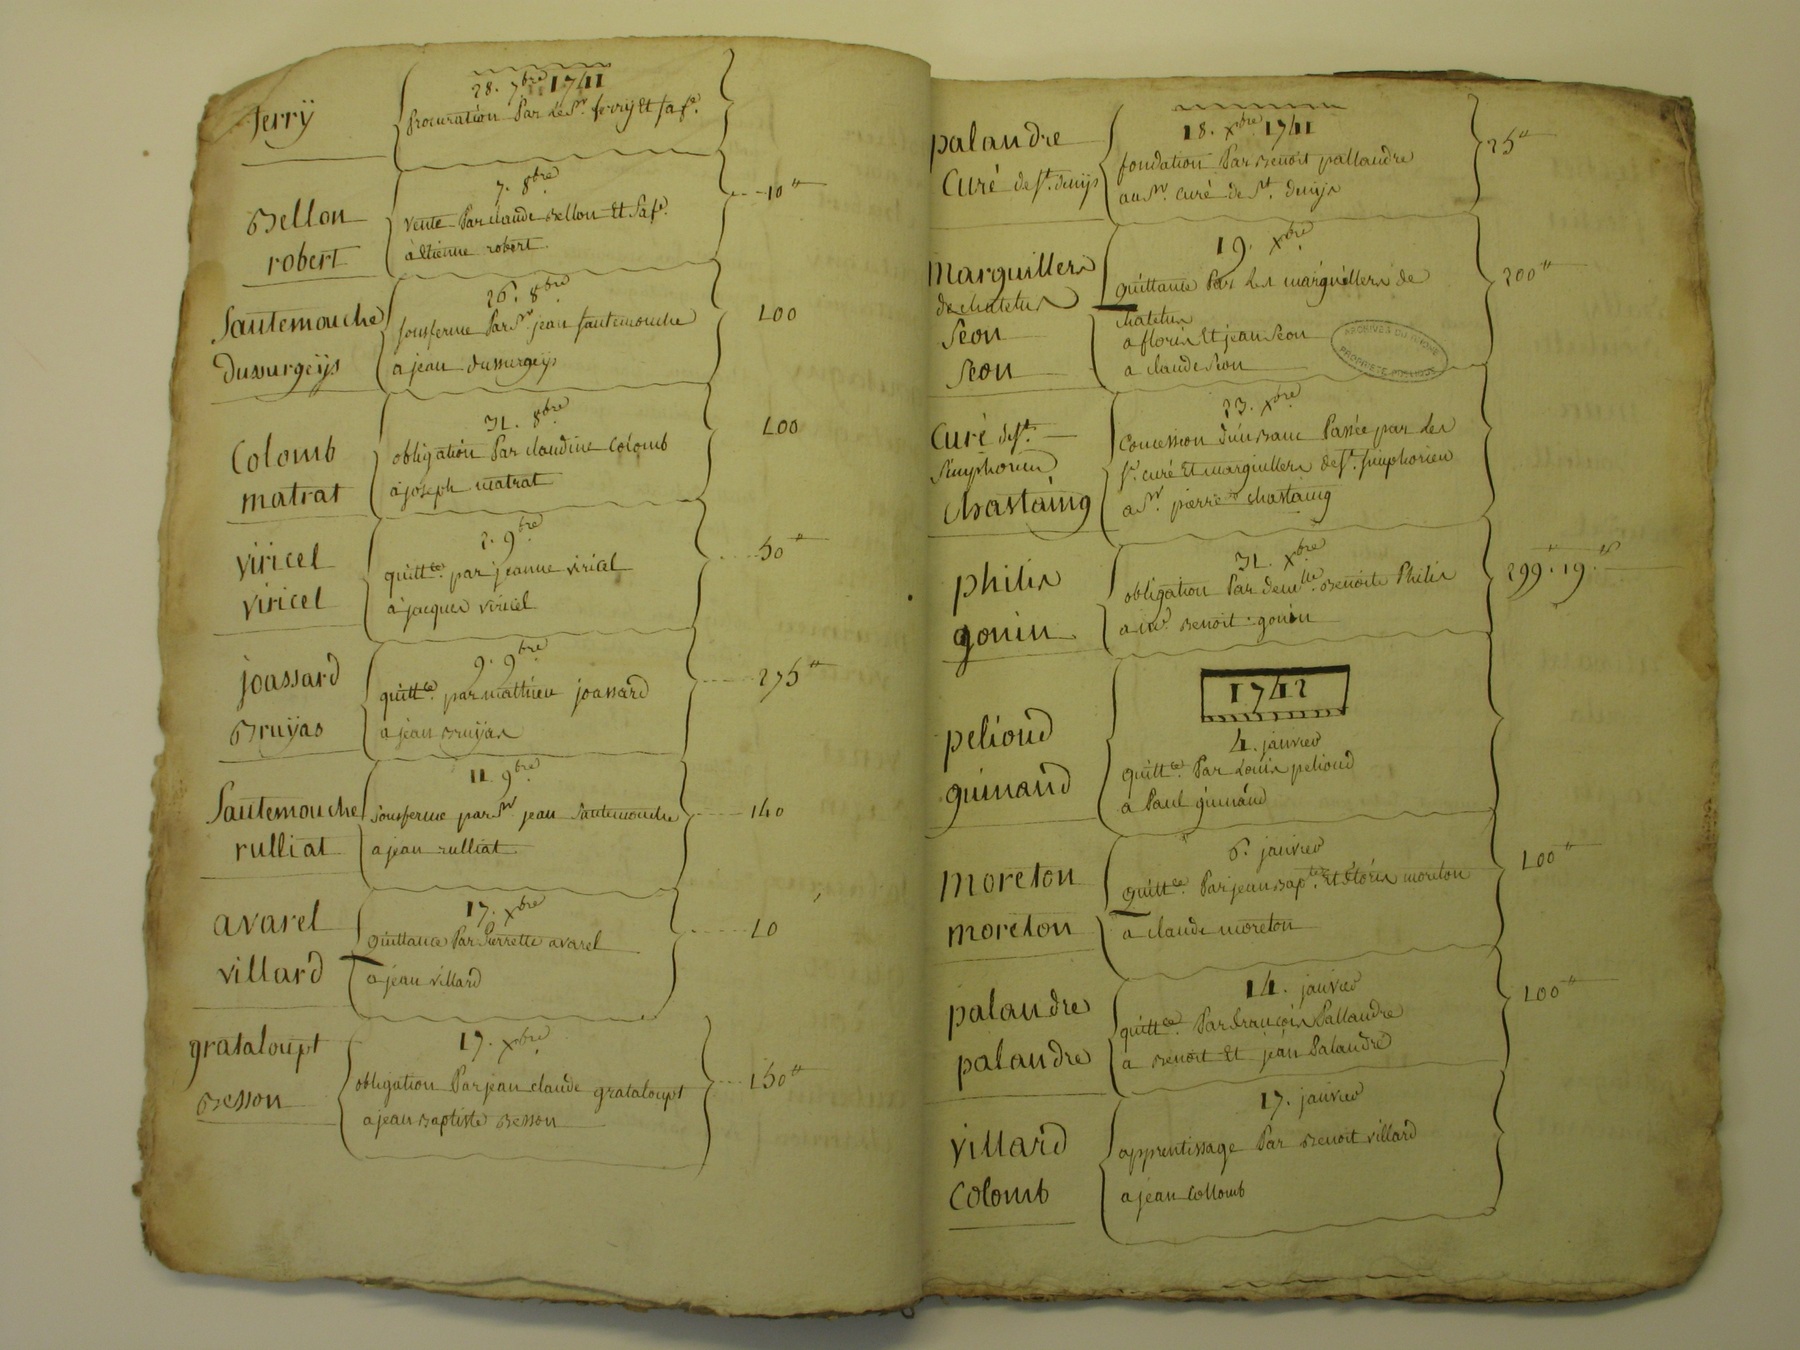 ferrÿ
28. 7bre 1741
Procuration Par le Sr. ferrÿ Et sa fe.
Bellon
robert
7. 8bre
vente Par claude Bellon Et Sa fe.
à Etienne robert
10tt
Sautemouche
dussurgeÿs
26. 8bre
sousferme Par Sr jean Sautemouche
a jean dussurgeÿs
100
Colomb
matrat
31. 8bre
obligation Par claudine Colomb
à joseph matrat
100
viricel
viricel
2. 9bre
quittce. par jeanne viricel
à jacques viricel
50tt
joassard
Bruÿas
9. 9bre
quittce. par mathieu joassard
a jean Bruÿas
275tt
Sautemouche
rulliat
11 9bre
sousferme par Sr jean Sautemouche
a jean rulliat
140
avarel
villard
17. xbre
Quittance Par Pierrette avarel
a jean villard
10
grataloupt
Besson
17. xbre
obligation Par jean claude grataloupt
a jean Baptiste Besson
150tt
palandre
Curé de St. denÿs
18. xbre 1741
fondation Par Benoit pallandre
au Sr. Curé de St. denÿs
25tt
Marguillers
de chatelus
Seon
Seon
19. xbre
Quittance Par Les marguillers de
chatelus
a floris Et jean Seon
a claude Seon
200tt
ARCHIVES DU RHONE
PROPRIETE PUBLIQUE
Curé de St.
Simphorien
Chastaing
23. xbre
Concession d'un Banc Passée par Les
Sr. curé Et marguillers de St. simphorien
a Sr. pierre chastaing
philis
gonin
31. xbre
obligation Par demlle. Benoite Philis
a me. Benoit gonin
299tt. 19s.
1742
pelioud
guinand
4. janvier
quittce. Par Louis pelioud
a Paul guinand
moreton
moreton
6. janvier
Quittce. Par jean Bapte. Et floris moreton
a claude moreton
100tt
palandre
palandre
14. janvier
quittce. Par francois Pallandre
a Benoit Et jean Palandre
100tt
villard
Colomb
17. janvier
apprentissage Par Benoit villard
a jean Collomb